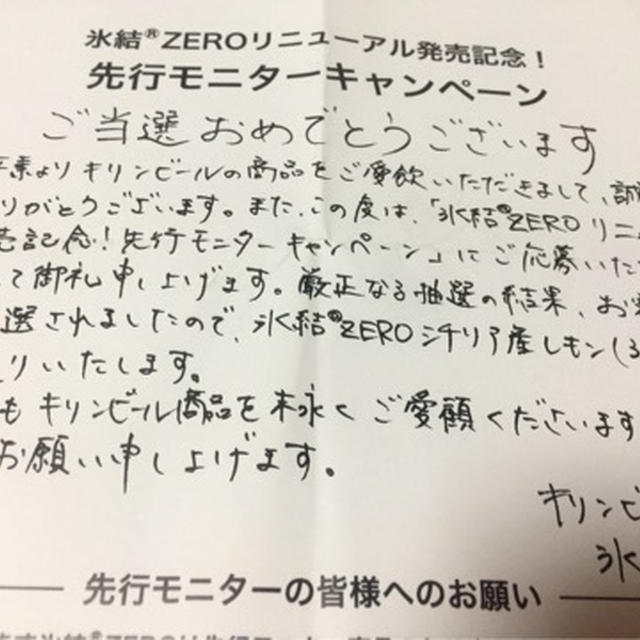 氷結®ZEROリニューアル発売記念!
先行モニターキャンペーン
ご当選おめでとうございます
素よりキリンビールの商品をご愛飲いただきまして、誠
りがとうございます。また、この度は、「氷結®ZEROリニ
売記念!先行モニターキャンペーン」にご応募いただ
て御礼申し上げます。厳正なる抽選の結果、お
選されましたので、氷結®ZEROシチリア産レモン(3
りいたします。
もキリンビール商品を末永くご愛顧くださいます
お願い申し上げます。
キリンビ
氷
先行モニターの皆様へのお願い